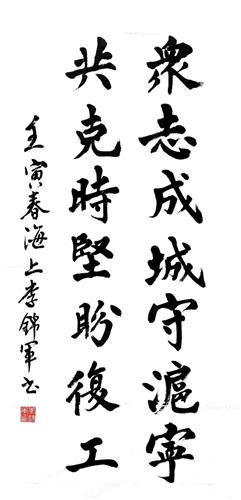 眾志成城守滬寧
共克時堅盼復工
壬寅春海上李錦軍书